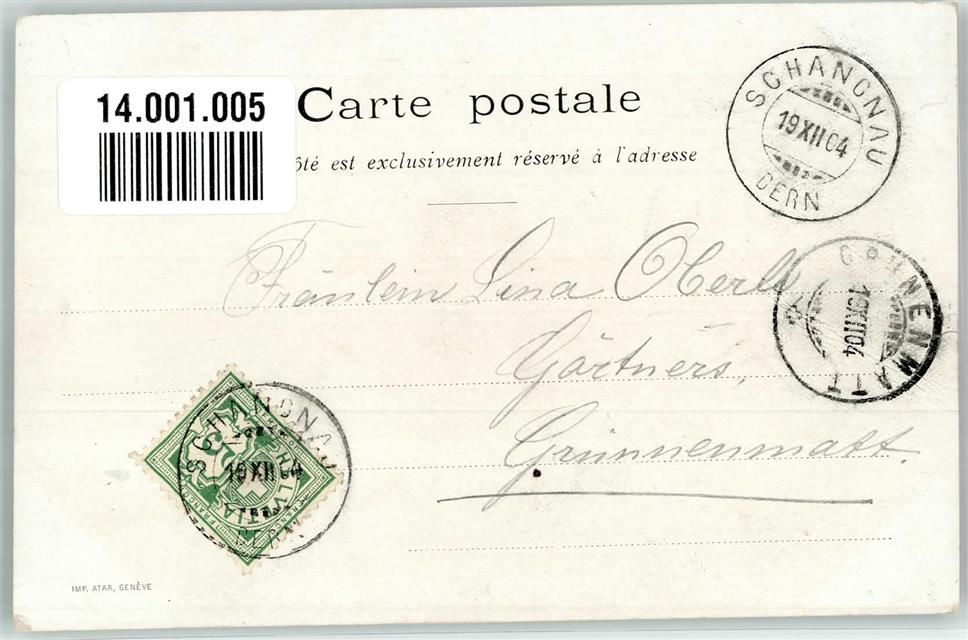 14.001.005
Carte postale
ôté est exclusivement réservé à l'adresse
SCHANGNAU
19 XII 04
BERN
GRÜNENMATT
19 XII 04
Fräulein Lina Oberli
Gärtners,
Grünnenmatt.
SCHANGNAU
HELVETIA
IMP. ATAR, GENÈVE